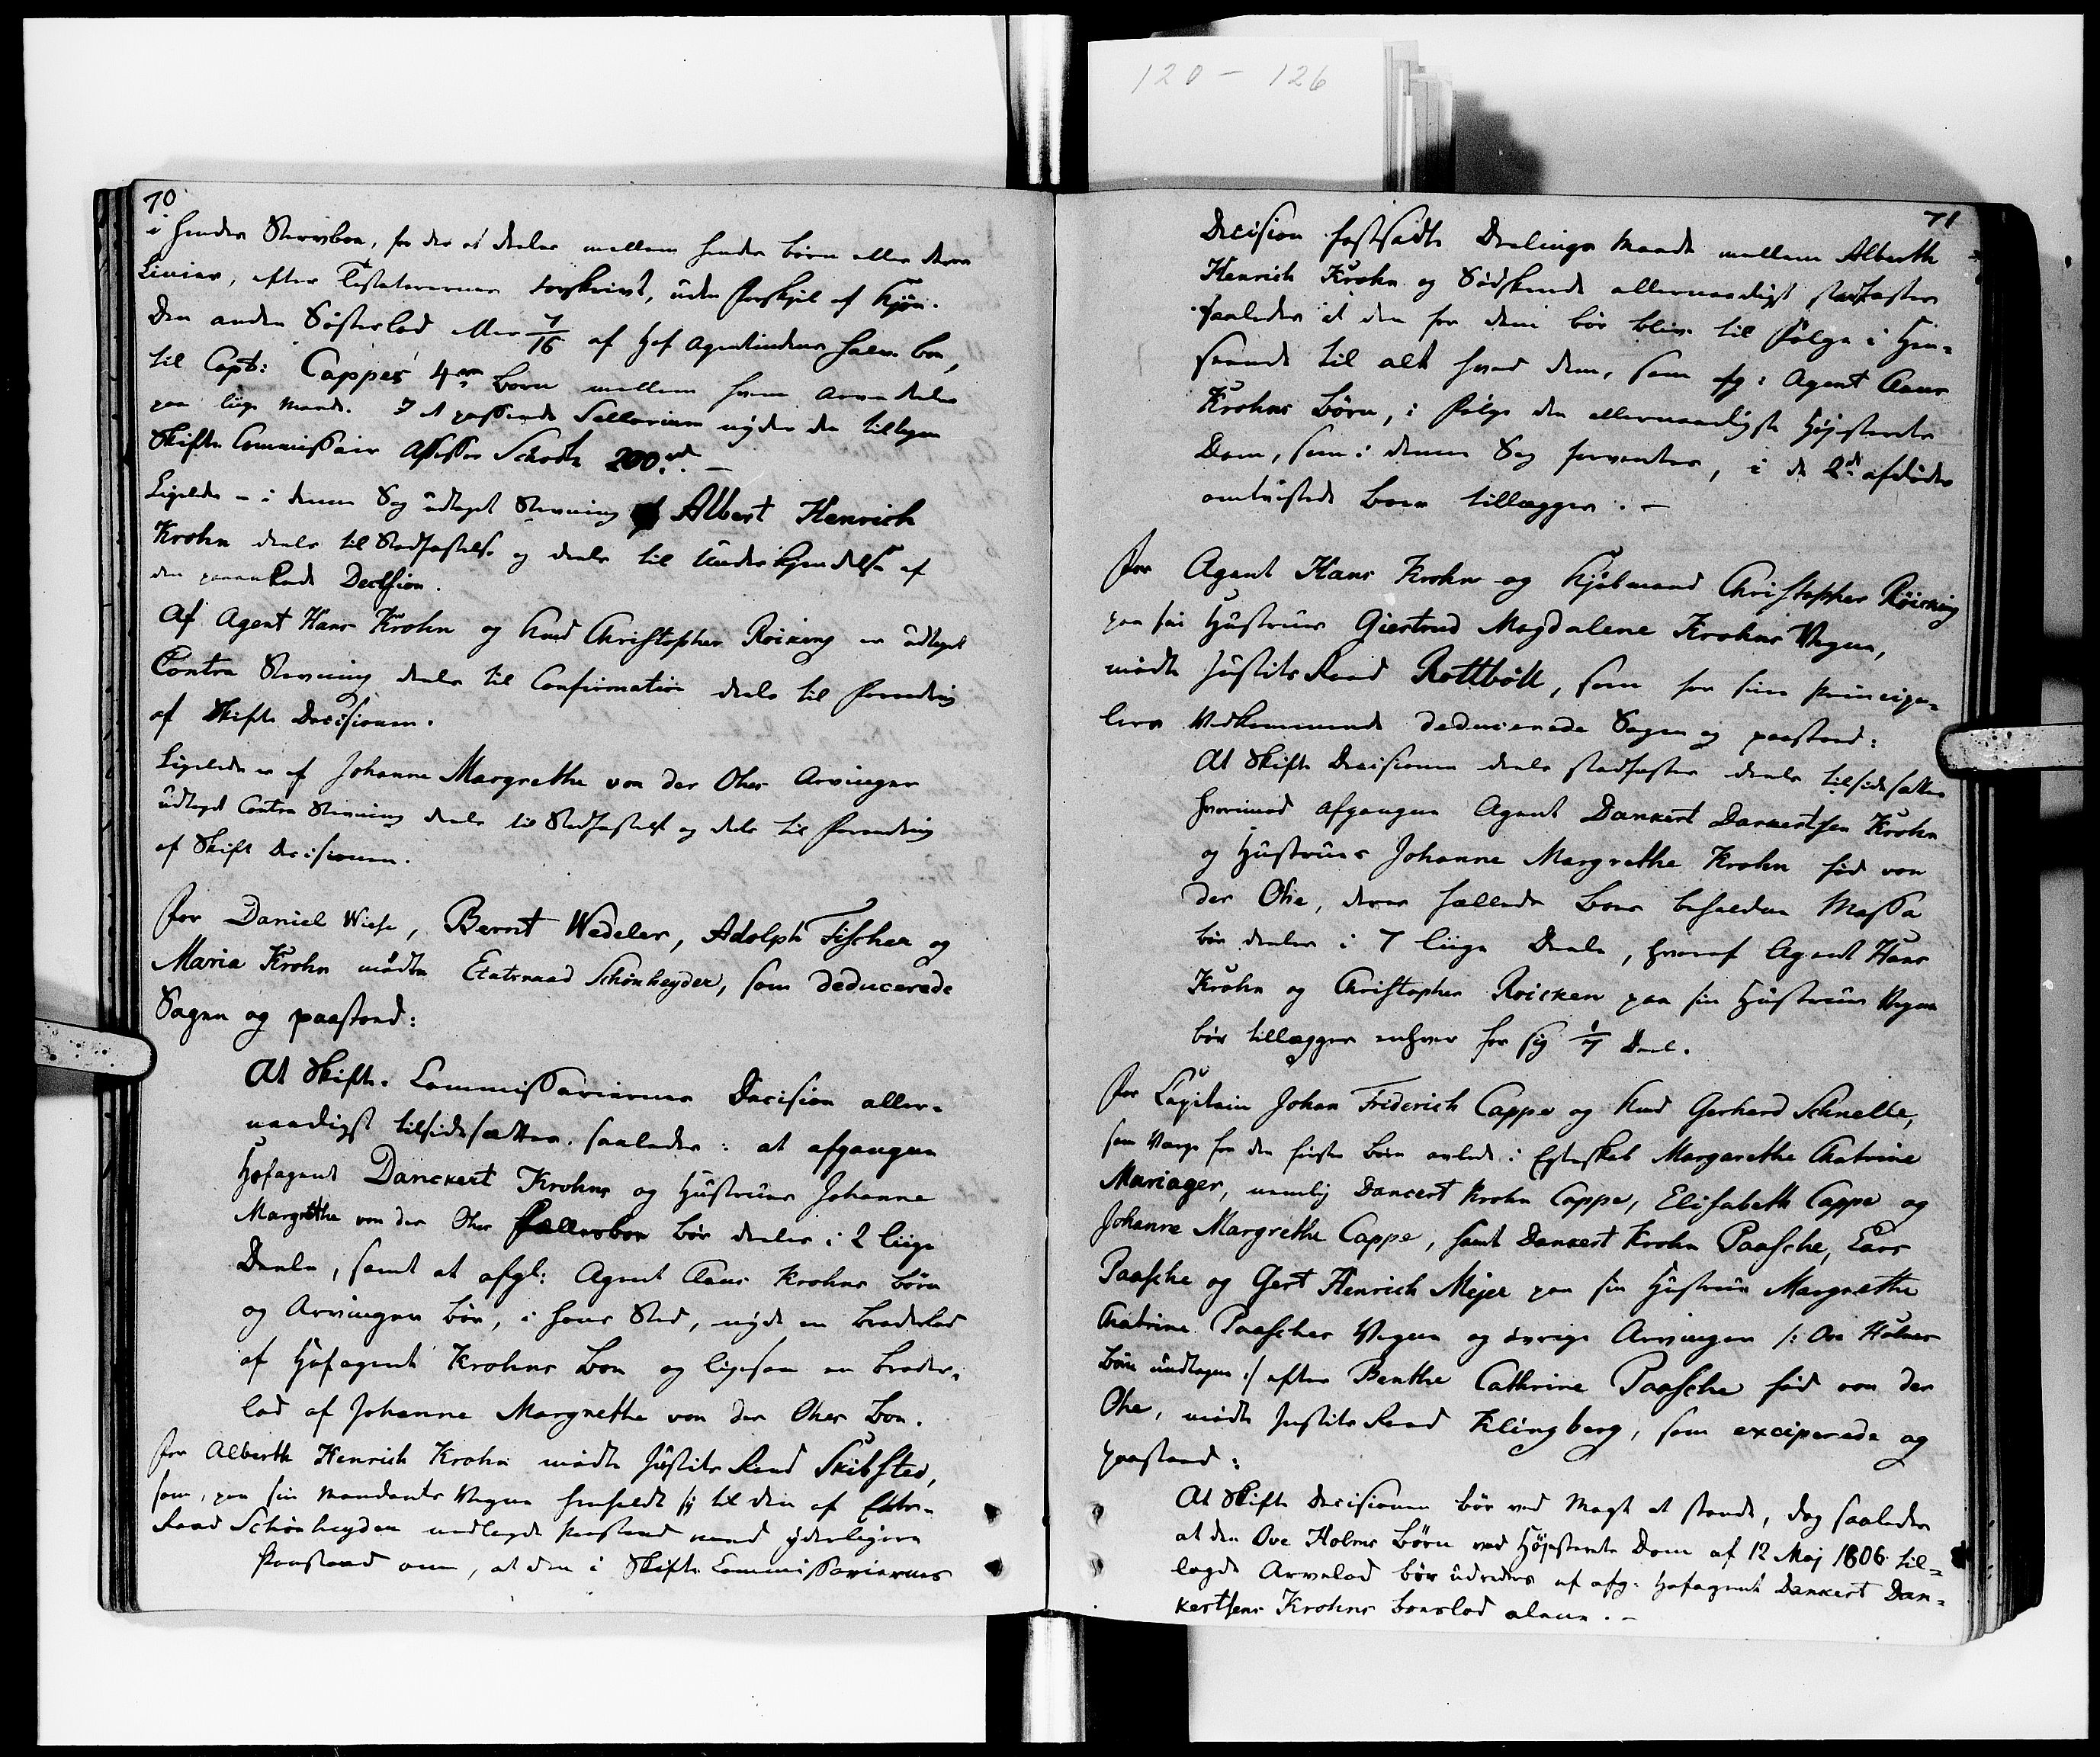 120 - 126
70
i hendes Stervboe, for der at deeles mellem hendes börn eller deres
Linier, efter Testatorernes Forskrivt, uden Forskjel af Kjön.
Den anden Söster lod eller 7/16 af Hof Agentindens halve boe,
til Capt: Cappes 4re Börn mellem hvem Arven deeles
paa liige Maade. I et passende Sallarium nyder den tiltagne
Skifte Commissair Assessor Schodtz 200 rd. –
Ligeledes – i denne Sag udtaget Stevning af Albert Henrich
Krohn deels til Stadfæstelse og deels til Underkjendelse af
den paaankede Decision.
Af Agent Hans Krohn og Kmd Christopher Roicking er udtaget
Contra Stevning deels til Confirmation deels til Forandring
af Skifte Decisionen.
Ligeledes er af Johanne Margrethe von der Ohes Arvinger
udtaget Contra Stevning deels til Stadfæstelse og deels til Forandring
af Skifte Decisionen.
For Daniel Wiese, Bernt Wedeler, Adolph Fischer og
Maria Krohn mödte Etatsraad Schönheyder, som deducerede
Sagen og paastod:
At Skifte-Commissariernes Decision aller-
naadigst tilsidesættes. saaledes: at afgangne
Hofagent Danckert Krohns og Hustrues Johanne
Margrethe von der Ohes Fællesboe bör deeles i 2 liige
Deele, samt at afgl: Agent Claus Krohns Börn
og Arvinger bör, i hans Sted, nyde en Broderlod
af Hofagent Krohns Boe og ligesaa en Broder-
lod af Johanne Margrethe von der Ohes Boe.
For Alberth Henrich Krohn mödte Justits Raad Skibsted,
som, paa sin Mandants Vegne henholdt sig til den af Etats-
Raad Schönheyder nedlagde Paastand med yderligere
Paastand om, at den i Skifte Commissariernes
71
Decision fastsadte Deelings Maade mellem Alberth
Henrich Krohn og Södskende allernaadigst stadfæstes
saaledes at den for dem bör blive til Fölge i Hen-
seende til alt hvad dem, som afg: Agent Claus
Krohns Börn, i Fölge den allernaadigste Höjesterets
Dom, som i denne Sag forventes, i de 2de afdödes
omtvistede Boer tillægges. –
For Agent Hans Krohn og Kjöbmand Christopher Röicking
paa sin Hustrues Giertrud Magdalene Krohns Vegne,
mödte Justits Raad Rottböll, som for sine Principa-
lers Vedkommende deducerede Sagen og paastod:
At Skifte Decisionen deels stadfæstes deels tilsidesættes
hvorimod afgangne Agent Dankert Dankertsen Krohn
og Hustrues Johanne Margrethe Krohn föd von
der Ohe, deres fælleds Boes beholdne Massa
bör deeles i 7 liige Deele, hvoraf Agent Hans
Krohn og Christopher Roicken paa sin Hustrues Vegne
bör tillægges enhver for sig 1/7 Deel.
For Capitain Johan Friderich Cappe og Kmd Gerhard Schnelle,
som Værge for den förstes Börn avlede i Egteskab Margarethe Chatrine
Mariager, nemlig Dancert Krohn Cappe, Elisabeth Cappe og
Johanne Margrethe Cappe, samt Dankert Krohn Paasche, Lars
Paasche og Gert Henrich Mejer paa sin Hustrue Margrethe
Chatrine Paasches Vegne og övrige Arvinger /: Ove Holmes
Börn undtagen :/ efter Benthe Cathrine Paasche föd von der
Ohe, mödte Justits Raad Klingberg, som exciperede og
paastod:
At Skifte Decisionen bör ved Magt at stande, dog saaledes
at den Ove Holms Börn ved Höjesterets Dom af 12 Maj 1806 til-
lagde Arvelod bör udredes af afg: Hofagent Dankert Dan-
kertsens Krohns Boeslod alene. –